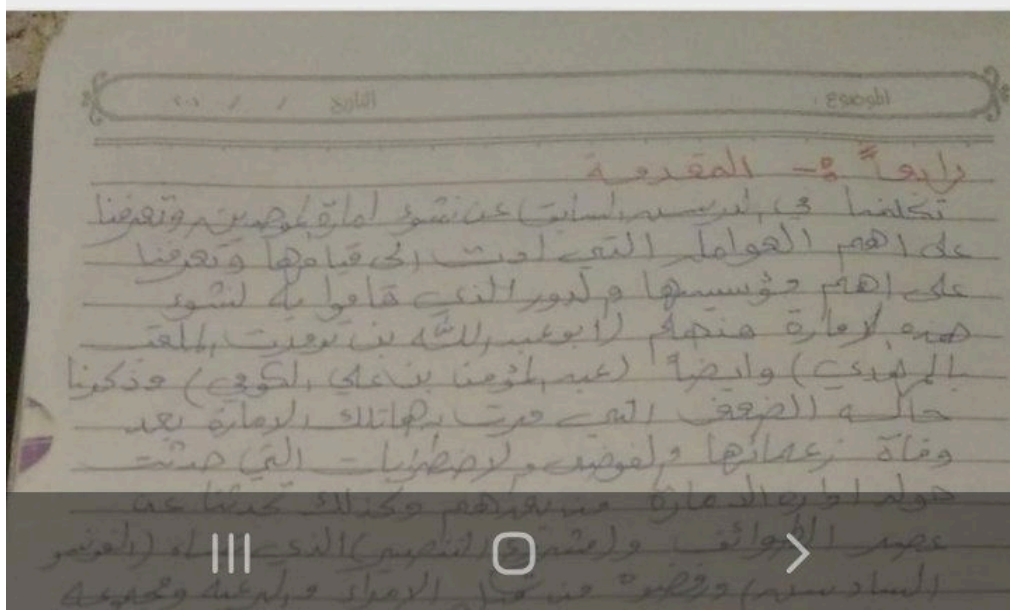 الموضوع : التاريخ / / ٢٠٠
رابعاً :- المقدمة
تكلمنا في الدرس السابق عن نشوء امارة الموحدين وتعرفنا
على اهم العوامل التي ادت الى قيامها وتعرفنا
على اهم مؤسسيها والدور الذي قاموا به لنشوء
هذه الامارة منهم (ابو عبد الله بن تومرت الملقب
بالمهدي) وايضاً (عبد المؤمن بن علي الكومي) وذكرنا
حالة الضعف التي مرت بها تلك الامارة بعد
وفاة زعمائها والفوضى والاضطرابات التي حدثت
حول ادارة الامارة من بعدهم وكذلك تحدثنا عن
عصر الطوائف و الذي (الفونسو
السادس) من قبل الامراء والرعية